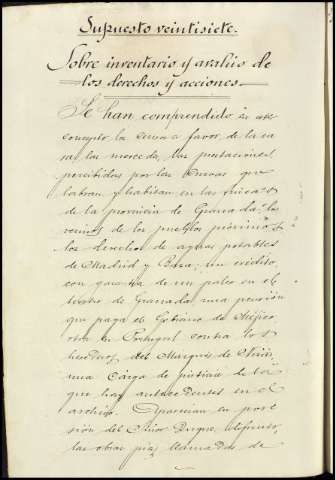 Supuesto veintisiete.
Sobre inventario y avalúo de
los derechos y acciones.
Se han comprendido en este
concepto la a favor de la ca
sa las prestaciones
percibidas por las Cuevas que
labran y habitan en las
de la provincia de Granada los
vecinos de los pueblos
los derechos de aguas potables
de Madrid y Baza; un crédito,
con garantia de un palco en el
teatro de Granada una pensión
que paga el Gobierno de Méjico
otra en Portugal contra los
herederos del Marqués de
una Carga de justicia de la
que hay antecedentes en el
archivo. Aparecian en pose
sión del Señor Duque, difunto,
las obras pias llamadas de